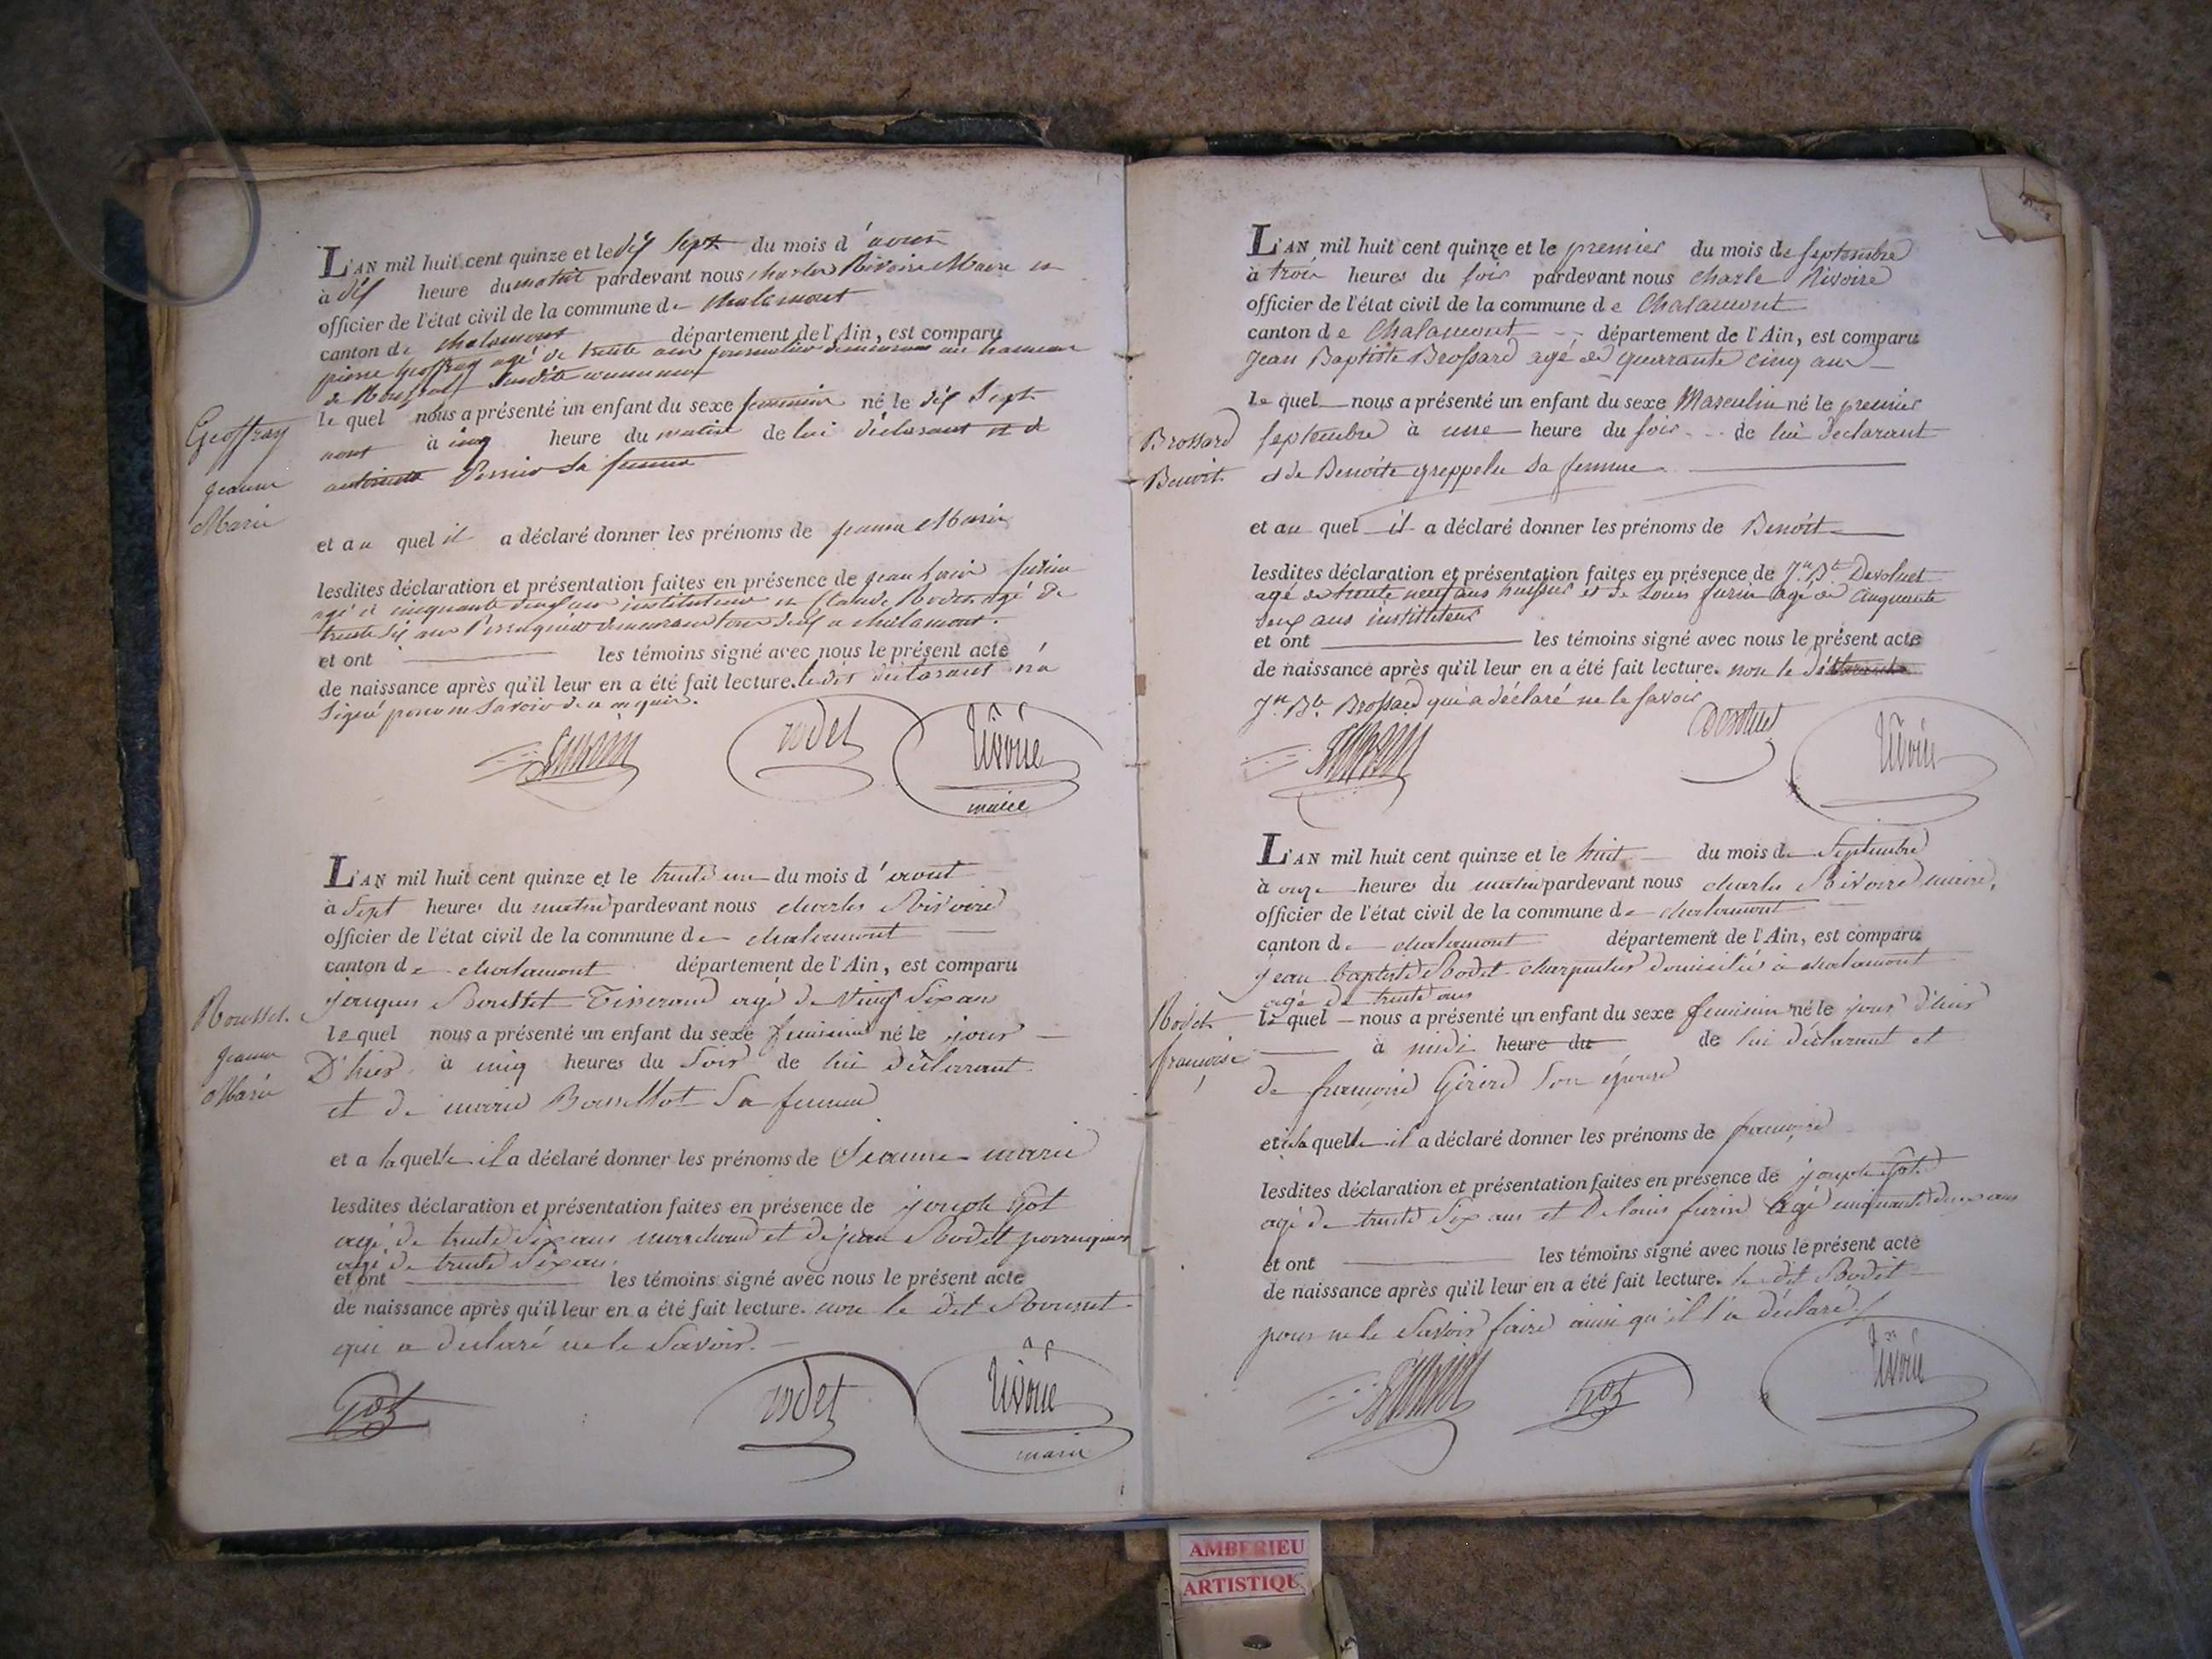 L'AN mil huit cent quinze et le dix sept du mois d'aout
à dix heure du matin pardevant nous charles Rivoire Maire et
officier de l'état civil de la commune de chalamont
canton de chalamont département de l'Ain, est comparu
pierre Geoffray agé de trente ans journalier demeurant au hameau
de
le quel nous a présenté un enfant du sexe feminin né le dix sept
aout à cinq heure du matin de lui déclarant et de
antoinette Pernier sa femme
Geoffray
jeanne
Marie
et au quel il a déclaré donner les prénoms de jeanne Marie
lesdites déclaration et présentation faites en présence de jean Louis furin
agé de cinquante deux ans instituteur et Claude Rodet agé de
trente six ans Perruquier demeurant tous deux a chalamont.
et ont les témoins signé avec nous le présent acte
de naissance après qu'il leur en a été fait lecture. le dit déclarant n'a
signé pour ne savoir de ce enquis.
furin rodet Rivoire
maire
L'AN mil huit cent quinze et le trente un du mois d'aout
à sept heures du matin pardevant nous charles Rivoire
officier de l'état civil de la commune de chalamont
canton de chalamont département de l'Ain, est comparu
jacques Rousset Tisserand agé de vingt six ans
Rousset
jeanne
Marie
le quel nous a présenté un enfant du sexe feminin né le jour
D'hier à cinq heures du soir de lui déclarant
et de marie sa femme
et a laquelle il a déclaré donner les prénoms de jeanne marie
lesdites déclaration et présentation faites en présence de joseph Got
agé de trente six ans marchand et de jean Rodet perruquier
agé de trente six ans
et ont les témoins signé avec nous le présent acte
de naissance après qu'il leur en a été fait lecture. non le dit Rousset
qui a declaré ne le savoir.
Got rodet Rivoire
maire
L'AN mil huit cent quinze et le premier du mois de septembre
à trois heures du soir pardevant nous charle Rivoire
officier de l'état civil de la commune de Chalamont
canton de Chalamont département de l'Ain, est comparu
Jean Baptiste Brossard agé de quarante cinq ans
le quel nous a présenté un enfant du sexe Masculin né le premier
Brossard
Benoit
septembre à une heure du soir de lui declarant
et de Benoite greppelu sa femme
et au quel il a déclaré donner les prénoms de Benoit
lesdites déclaration et présentation faites en présence de Jn. Bte Devoluet
agé de trente neuf ans huissier et de Louis furin agé de cinquante
deux ans instituteur
et ont les témoins signé avec nous le présent acte
de naissance après qu'il leur en a été fait lecture. non le
Jn. Bte. Brossard qui a déclaré ne le savoir
furin Devoluet Rivoire
L'AN mil huit cent quinze et le huit du mois de Septembre
à onze heures du matin pardevant nous charles Rivoire maire,
officier de l'état civil de la commune de chalamont
canton de chalamont département de l'Ain, est comparu
jean baptiste Rodet charpentier domicilié à chalamont
agé de trente ans
Rodet
françoise
le quel nous a présenté un enfant du sexe feminin né le jour d'hier
à midi heure du de lui déclarant et
de françoise Girerd son épouse
et à la quelle il a déclaré donner les prénoms de françoise
lesdites déclaration et présentation faites en présence de joseph Got
agé de trente six ans et de louis furin agé cinquante deux ans
et ont les témoins signé avec nous le présent acte
de naissance après qu'il leur en a été fait lecture. le dit Rodet
pour ne le savoir faire ainsi qu'il l'a déclaré
furin Got Rivoire
AMBERIEU
ARTISTIQUE